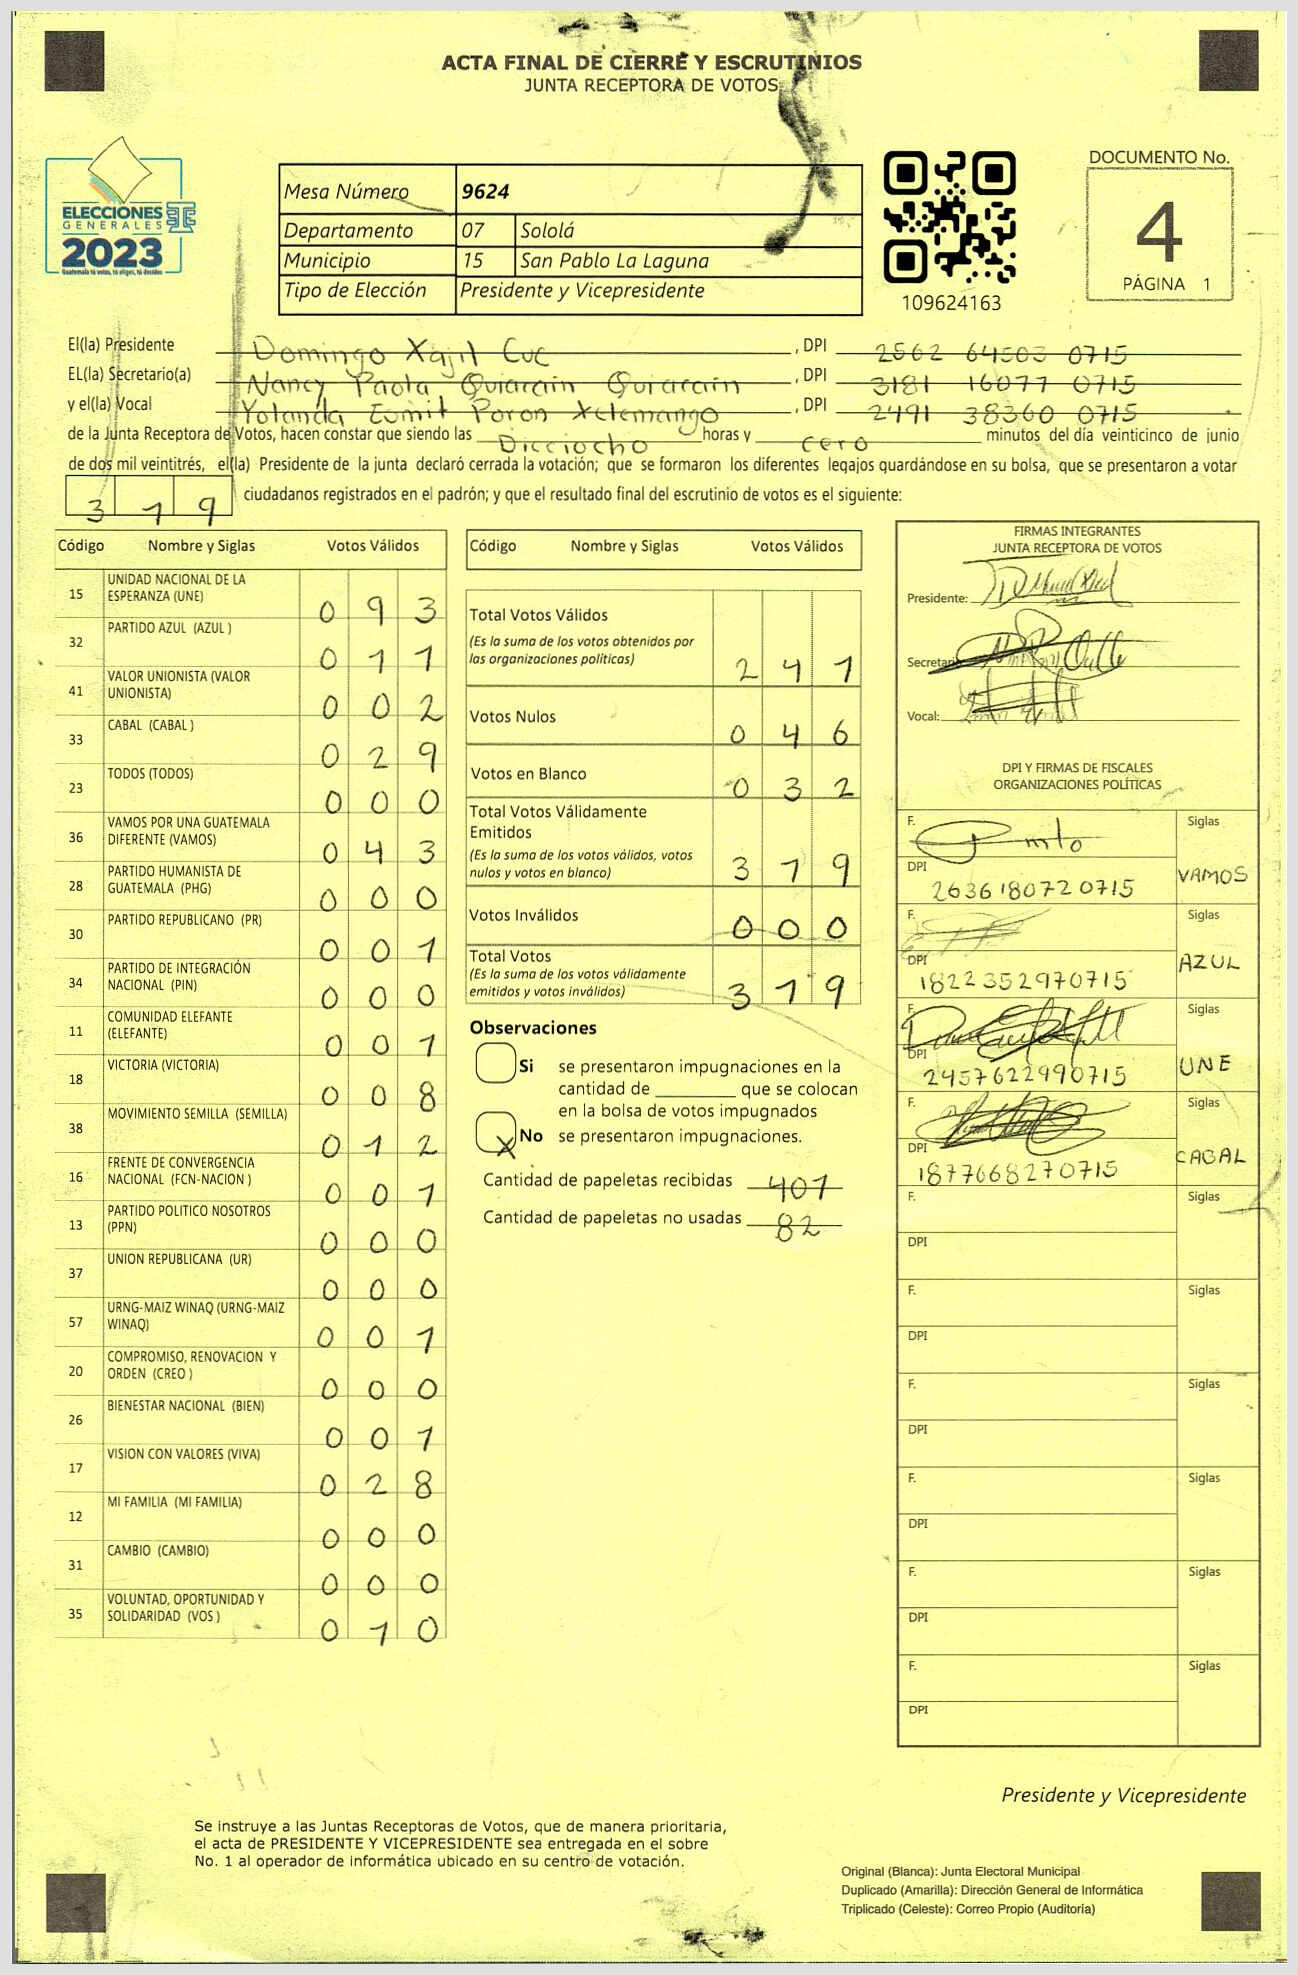 ACTA FINAL DE CIERRE Y ESCRUTINIOS
JUNTA RECEPTORA DE VOTOS
ELECCIONES
GENERALES
2023
Guatemala tú votas, tú eliges, tú decides
Mesa Número 9624
Departamento 07 Sololá
Municipio 15 San Pablo La Laguna
Tipo de Elección Presidente y Vicepresidente
109624163
DOCUMENTO No.
4
PÁGINA 1
El(la) Presidente Domingo Xajil Cuc, DPI 2562 64503 0715
EL(la) Secretario(a) Nancy Paola Quiacain Quiacain, DPI 3181 16077 0715
y el(la) Vocal Yolanda Eumit Poron Xelemango, DPI 2491 38360 0715
de la Junta Receptora de Votos, hacen constar que siendo las Dieciocho horas y cero minutos del día veinticinco de junio
de dos mil veintitrés, el(la) Presidente de la junta declaró cerrada la votación; que se formaron los diferentes legajos guardándose en su bolsa, que se presentaron a votar
319 ciudadanos registrados en el padrón; y que el resultado final del escrutinio de votos es el siguiente:
Código Nombre y Siglas Votos Válidos
15 UNIDAD NACIONAL DE LA ESPERANZA (UNE) 093
32 PARTIDO AZUL (AZUL ) 011
41 VALOR UNIONISTA (VALOR UNIONISTA) 002
33 CABAL (CABAL ) 029
23 TODOS (TODOS) 000
36 VAMOS POR UNA GUATEMALA DIFERENTE (VAMOS) 043
28 PARTIDO HUMANISTA DE GUATEMALA (PHG) 000
30 PARTIDO REPUBLICANO (PR) 001
34 PARTIDO DE INTEGRACIÓN NACIONAL (PIN) 000
11 COMUNIDAD ELEFANTE (ELEFANTE) 001
18 VICTORIA (VICTORIA) 008
38 MOVIMIENTO SEMILLA (SEMILLA) 012
16 FRENTE DE CONVERGENCIA NACIONAL (FCN-NACION ) 001
13 PARTIDO POLITICO NOSOTROS (PPN) 000
37 UNION REPUBLICANA (UR) 000
57 URNG-MAIZ WINAQ (URNG-MAIZ WINAQ) 001
20 COMPROMISO, RENOVACION Y ORDEN (CREO ) 000
26 BIENESTAR NACIONAL (BIEN) 001
17 VISION CON VALORES (VIVA) 028
12 MI FAMILIA (MI FAMILIA) 000
31 CAMBIO (CAMBIO) 000
35 VOLUNTAD, OPORTUNIDAD Y SOLIDARIDAD (VOS ) 010
Código Nombre y Siglas Votos Válidos
Total Votos Válidos
(Es la suma de los votos obtenidos por
las organizaciones políticas) 241
Votos Nulos 046
Votos en Blanco 032
Total Votos Válidamente
Emitidos
(Es la suma de los votos válidos, votos
nulos y votos en blanco) 319
Votos Inválidos 000
Total Votos
(Es la suma de los votos válidamente
emitidos y votos inválidos) 319
Observaciones
Si se presentaron impugnaciones en la
cantidad de ________ que se colocan
en la bolsa de votos impugnados
X No se presentaron impugnaciones.
Cantidad de papeletas recibidas 401
Cantidad de papeletas no usadas 82
FIRMAS INTEGRANTES
JUNTA RECEPTORA DE VOTOS
Presidente:
Secretario:
Vocal:
DPI Y FIRMAS DE FISCALES
ORGANIZACIONES POLÍTICAS
F. Siglas
DPI 2636180720715 VAMOS
F. Siglas
DPI 1822352970715 AZUL
F. Siglas
DPI 2457622990715 UNE
F. Siglas
DPI 1877668270715 CABAL
F. Siglas
DPI
F. Siglas
DPI
F. Siglas
DPI
F. Siglas
DPI
F. Siglas
DPI
F. Siglas
DPI
Presidente y Vicepresidente
Se instruye a las Juntas Receptoras de Votos, que de manera prioritaria,
el acta de PRESIDENTE Y VICEPRESIDENTE sea entregada en el sobre
No. 1 al operador de informática ubicado en su centro de votación.
Original (Blanca): Junta Electoral Municipal
Duplicado (Amarilla): Dirección General de Informática
Triplicado (Celeste): Correo Propio (Auditoría)